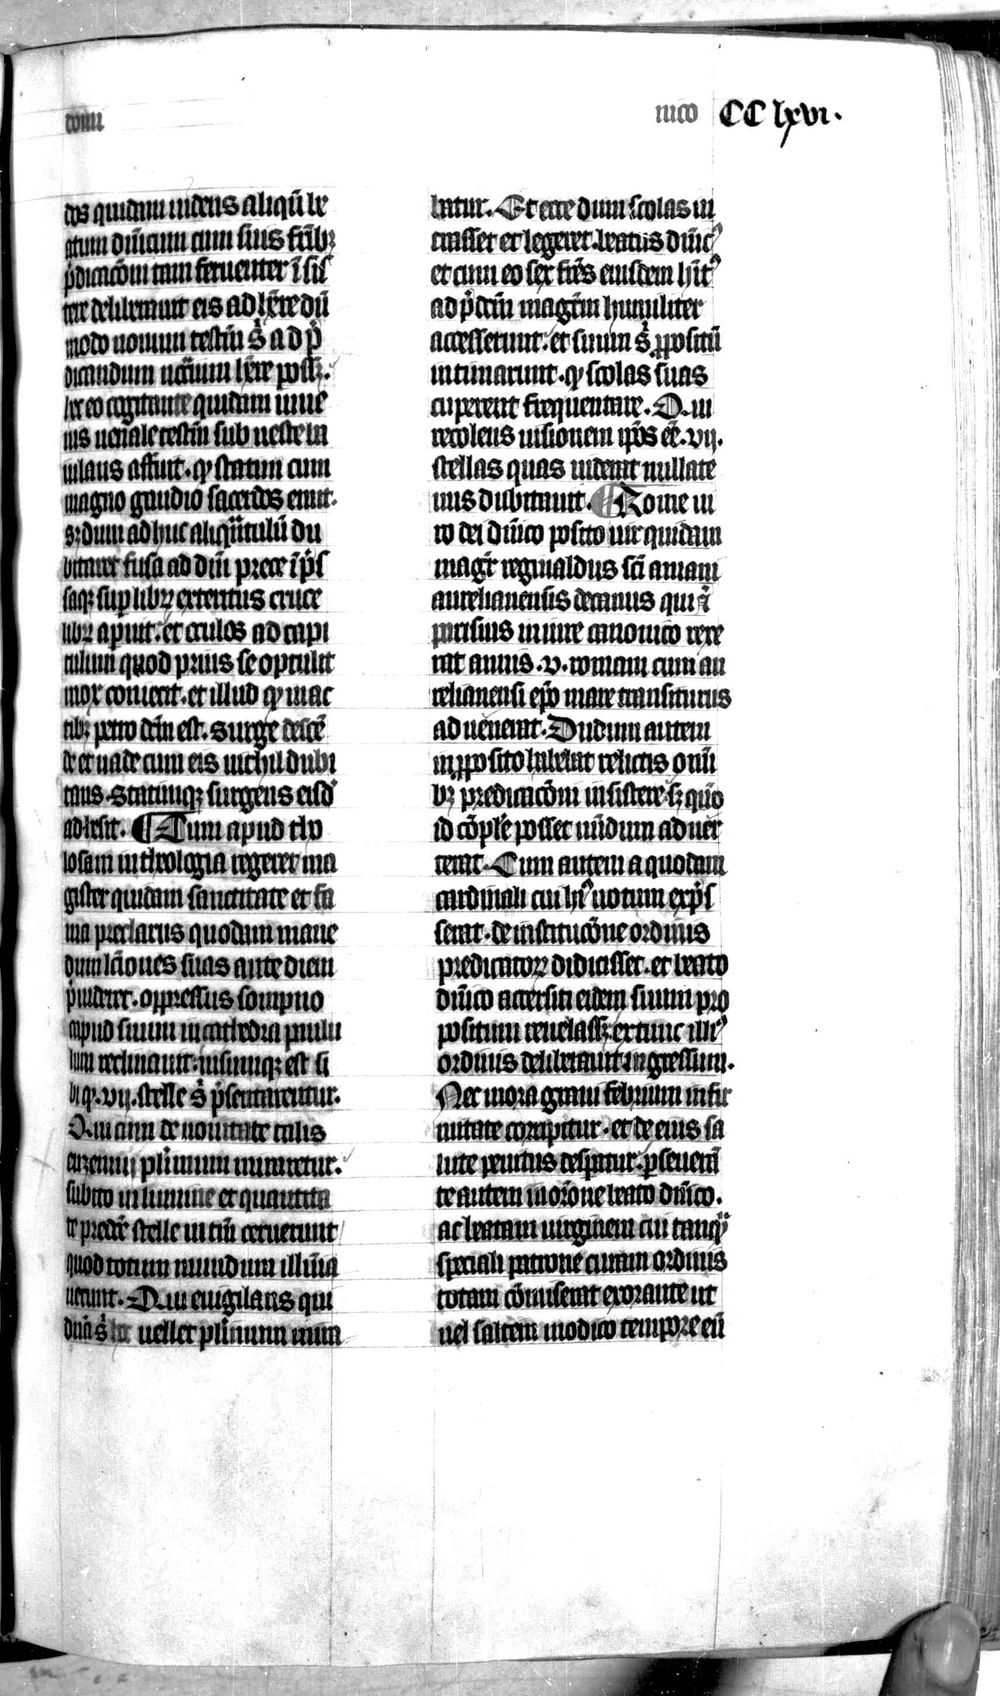 domi
nico CC lxvi.
dos quidam uidens aliqu̅ le
gatum dn̅icum cum suis fr̅ibꝫ
p̅dicac̅oni tam feruenter i̅sis
tere deliberauit eis adh̅ere du̅
modo nouum testm̅ s̅ ad p̅
dicandum nc̅ium h̅ere posꝫ.
hec eo cogitante quidam iuue
nis uenale testm̅ sub ueste ba
iulans affuit. qͥ statim cum
magno gaudio sacerdos emit.
sꝫ dum adhuc aliqͣntulu̅ du
bitaret fusa ad dn̅m prece ip̅s
saqꝫ sup libꝝ extentus cruce
libꝝ apuit. et oculos ad capi
tulum quod prius se optulit
mox coniecit. et illud qͥ in ac
tibꝫ petro dc̅m est. Surge desce̅
de et uade cum eis nichil dubi
tans. Statimqꝫ surgens eisd̅
adhesit. ¶ Cum apud tho
losam in theologia regeret ma
gister quidam sanctitate et fa
ma preclarus quodam mane
dum lc̅iones suas ante diem
p̅uideret. oppressus sompno
capud suum in cathedra paulu
lum reclinauit. uisumqꝫ est si
bi qͥ. vij. stelle s̅ p̅sentarentur.
Qui cum de nouitate talis
exzennij plimum miraretur.
subito in lumine et quantita
te predc̅e stelle in tm̅ creuerunt
quod totum mundum illu̅ia
uerunt. Qui euigilans qui
dnā s̅ hec uellet plimum mira
batur. Et ecce dum scolas in
trasset et legeret. beatus dn̅ic᷒
et cum eo sex fr̅es eiusdem h̅it᷒
ad p̅dc̅m magr̅m humiliter
accesserunt. et suum s̅ ꝓpositu̅
intimarunt. qͥ scolas suas
cuperent frequentare. Qui
recolens uisionem ip̅os ee̅. vij.
stellas quas uiderat nullate
nus dubitauit. ¶ Rome ui
ro dei dn̅ico posito uir quidam
magr̅ reginaldus sc̅i aniani
aurelianensis decanus qui ⁊
parisius in iure canonico rexe
rat annis. v. romam cum au
relianensi ep̅o mare transiturus
aduenerat. Dudum autem
in ꝓposito habebat relictis omi̅
bꝫ predicac̅oni insistere. sꝫ quo̅
id co̅ple̅ posset nu̅dum aduer
terat. Cum autem a quodam
cardinali cui h᷒ uotum exp̅s
serat. de instituc̅one ordinis
predicatoꝝ didicisset. et beato
dn̅ico accersito eidem suum pro
positum reuelassꝫ extunc ill᷒
ordinis deliberauit ingressum.
Nec mora graui febrium infir
mitate corripitur. et de eius sa
lute penitus desperatur. pseuera̅
te autem in or̅one beato dn̅ico.
ac beatam uirginem cui tanqͣ
speciali patrone curam ordinis
totam co̅miserat exorante ut
uel saltem modico tempore eu̅